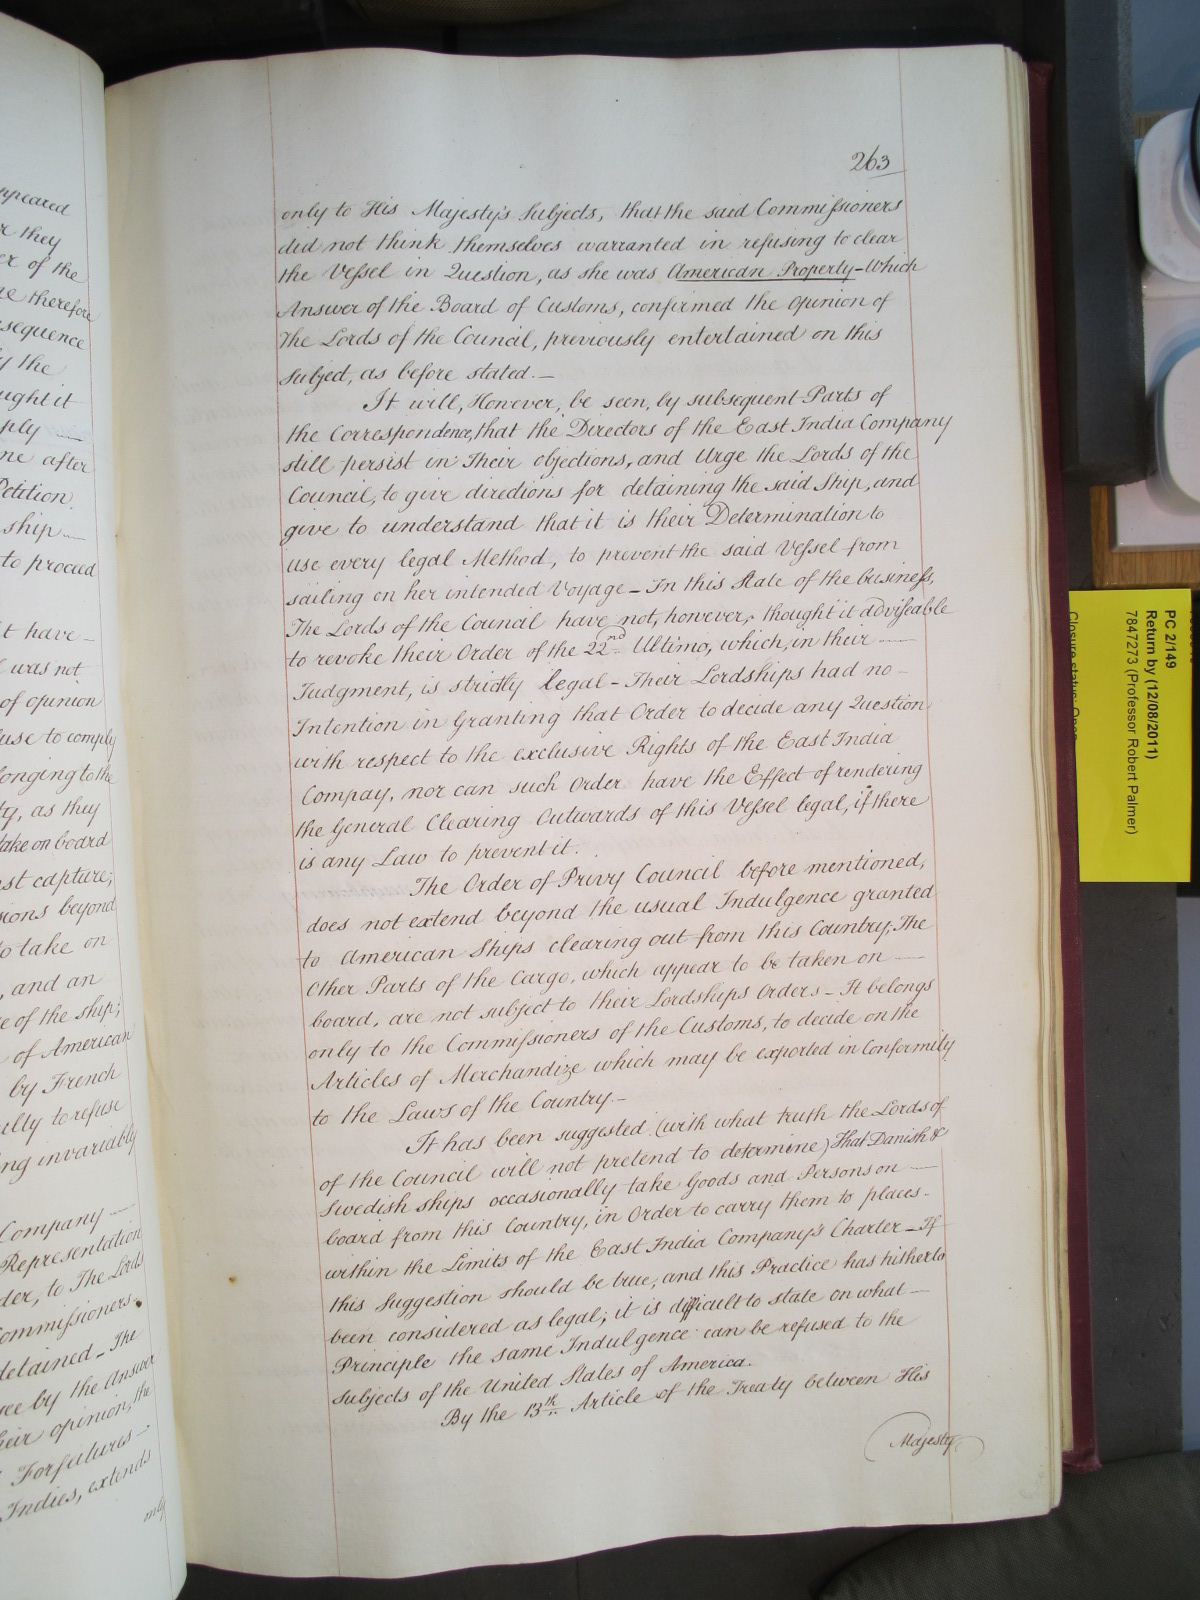 263
only to His Majesty's Subjects, that the said Commissioners
did not think themselves warranted in refusing to clear
the Vessel in Question, as she was American Property - Which
Answer of the Board of Customs, confirmed the Opinion of
The Lords of the Council, previously entertained on this
Subject, as before stated. —
It will, However, be seen, by subsequent Parts of
the Correspondence, that the Directors of the East India Company
still persist in Their objections, and Urge the Lords of the
Council, to give directions for detaining the said Ship, and
give to understand that it is their Determination to
use every legal Method, to prevent the said Vessel from
sailing on her intended Voyage - In this State of the business,
The Lords of the Council have not, however, thought it adviseable
to revoke their Order of the 22nd Ultimo, which, in their —
Judgment, is strictly legal - Their Lordships had no —
Intention in Granting that Order to decide any Question
with respect to the exclusive Rights of the East India
Compay, nor can such Order have the Effect of rendering
the General Clearing Outwards of this Vessel legal, if there
is any Law to prevent it.
The Order of Privy Council before mentioned,
does not extend beyond the usual Indulgence granted
to American Ships clearing out from this Country; The
Other Parts of the Cargo, which appear to be taken on —
board, are not subject to their Lordships Orders - It belongs
only to the Commissioners of the Customs, to decide on the
Articles of Merchandize which may be exported in Conformity
to the Laws of the Country. -
It has been suggested (with what truth the Lords of
of the Council will not pretend to determine) that Danish &
Swedish ships occasionally take Goods and Persons on —
board from this Country, in Order to carry them to places -
within the Limits of the East India Company's Charter - If
this Suggestion should be true, and this Practice has hitherto
been considered as legal; it is difficult to state on what —
Principle the same Indulgence can be refused to the
Subjects of the United States of America.
By the 13th Article of the Treaty between His
Majesty
appeared
they
of the
therefore
sequence
the
ught it
ply —
ne after
Petition
ship —
to proceed
t have —
was not
of opinion
use to comply
longing to the
ty, as they
take on board
st capture;
sions beyond
to take on
, and an
e of the ship;
of American
by French
ulty to refuse
ng invariably
Company —
Representation
der, to The Lords
Commissioners
detained - The
see by the Answer
heir opinion, the
Forfeitures —
Indies, extends
only
PC 2/149
Return by (12/08/2011)
7847273 (Professor Robert Palmer)
Closure status: Open